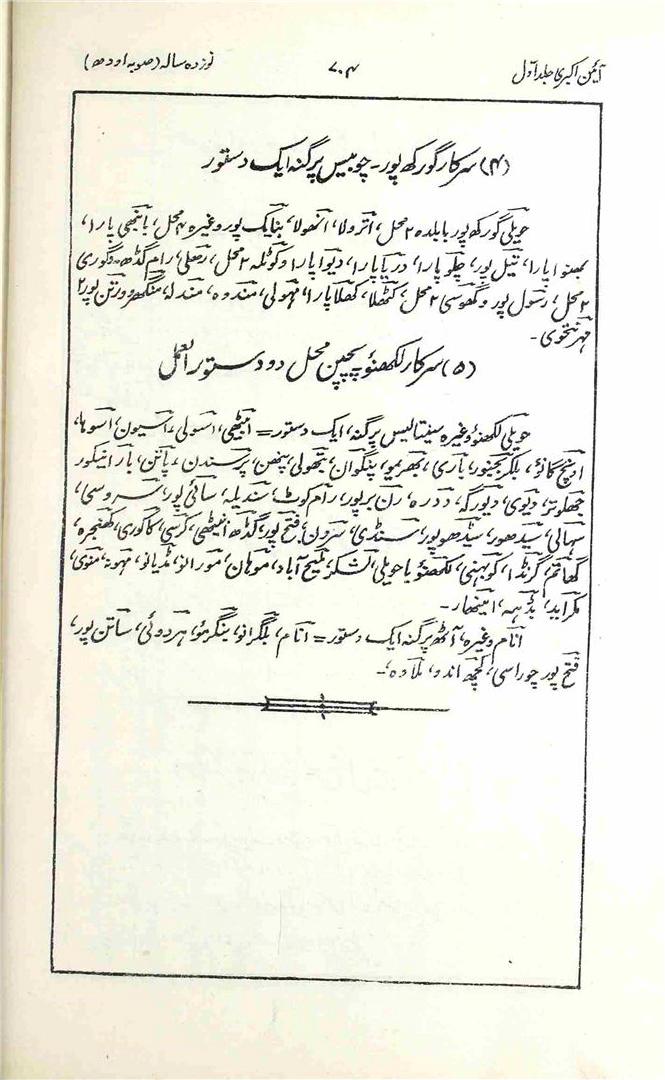 آئین اکبری جلد اول ۷۰۴ نوزدہ سالہ (صوبہ اودھ)
(۴) سرکار گورکھ پور۔ چوبیس پرگنہ ایک دستور
حویلی گورکھ پور با بلدہ ۲ محل، اترولا، انھولا، بنایک پور وغیرہ ۴ محل، بانبھی پارا،
بھنوا پارا، تیل پور، چلو پارا، دریا پارا، دیوا پارا و کوٹلہ ۲ محل، رھلی، رام گڈھ و گوری
۲ محل، رسول پور و گھوسی ۲ محل، کٹھلا، کھلا پارا، مہولی، مندوہ، مندلہ، منگھر و رتن پور ۲
(۵) سرکار لکھنؤ پچپن محل دو دستور العمل
حویلی لکھنؤ وغیرہ سینتالیس پرگنہ، ایک دستور = امیٹھی، اسولی، اسیون، اسوہا،
اونچ گاؤں، بلکر، بجنور، باری، بھریمو، پنگوان، بتھولی، پنھن، پرسندن، پاتن، بارانیکور
جھلوتر، دیوی، دیورکہ، ددرہ، رن بر پور، رام کوٹ، سندیلہ، سائی پور، سروسی،
سہالی، سیدھور، سیڈھوپور، سنڈی، سرون، فتح پور، گڈھ امیٹھی، کرسی، کاکوری، کھنجرہ،
گھاتم، گرنڈا، کوبہنی، لکھنؤ با حویلی، لشکر، ملیح آباد، موہان، مورانو، مڈیانو، مہونہ، منوی،
مکراید، ہڈہہ، اینھار۔
انام وغیرہ، آٹھ پرگنہ ایک دستور = انام، بلگرانو، بنگرمؤ، ہردوئی، ساتن پور،
فتح پور چوراسی، کچھ اندو، ملاوہ۔